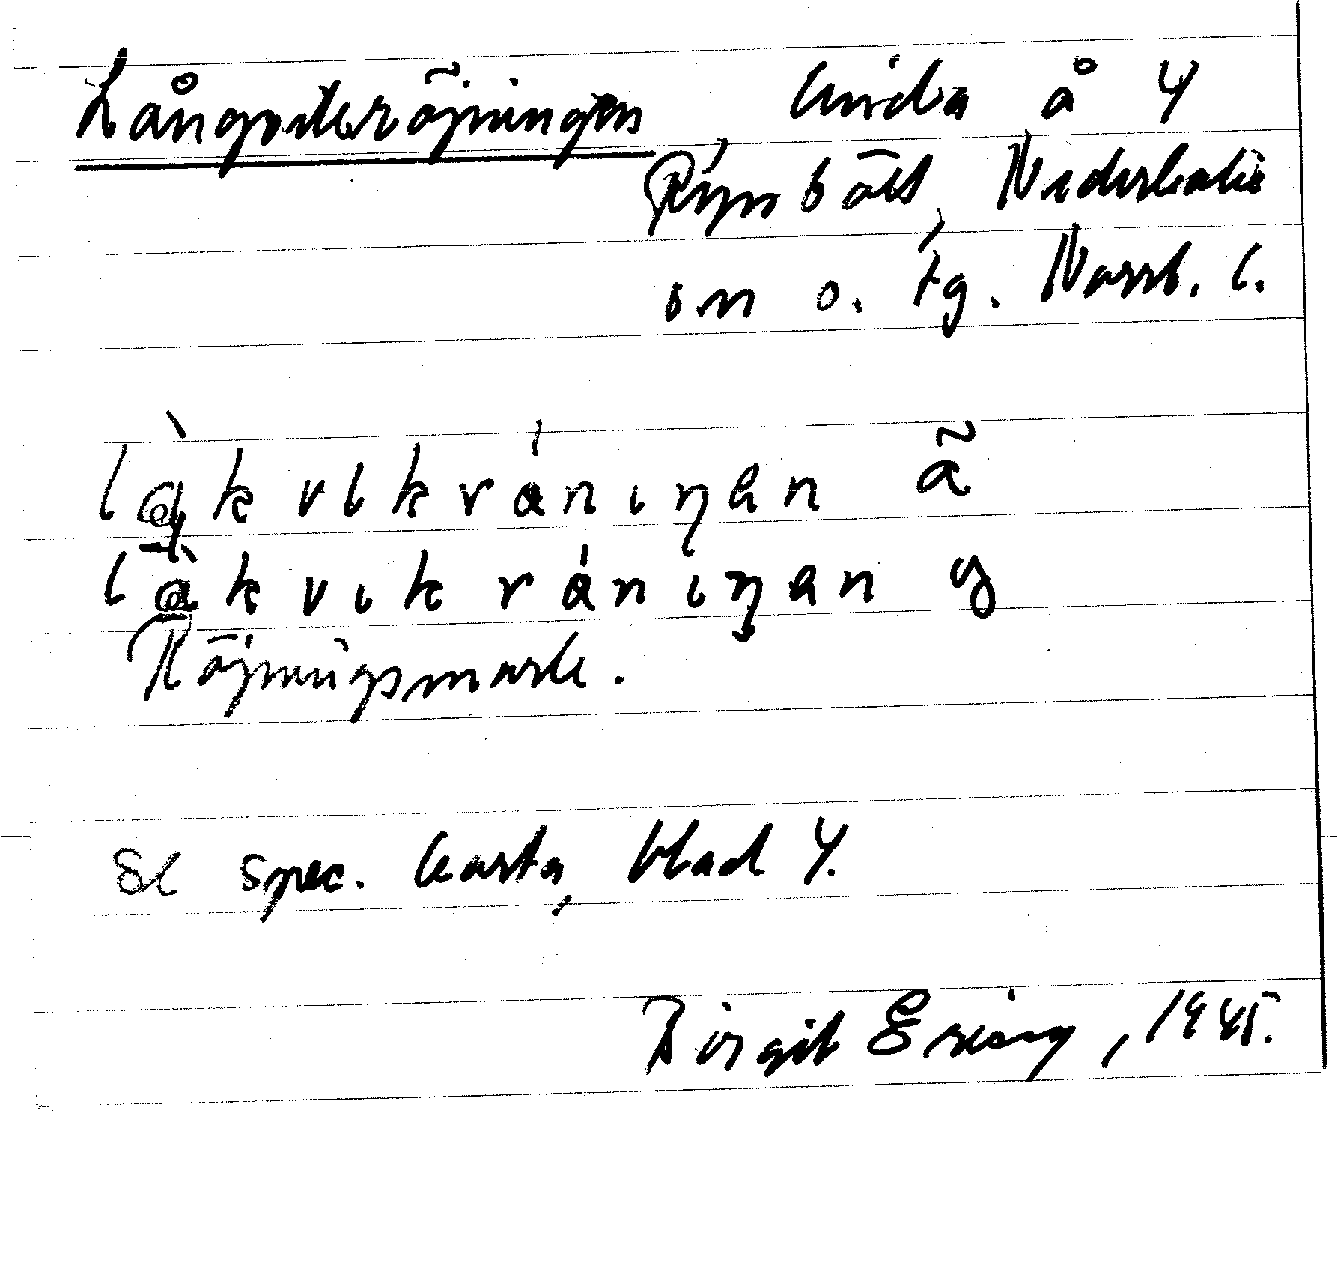 Långviksröjningen, linda å 4
Rijn bält, Nederkalix
sn o. tg. Norrb. l.
lå̀kvikrǻniŋan ã
lå̀kvikrániŋan y
Röjningsmark.
Se spec. karta, blad 4.
Birgit Ering, 1945.